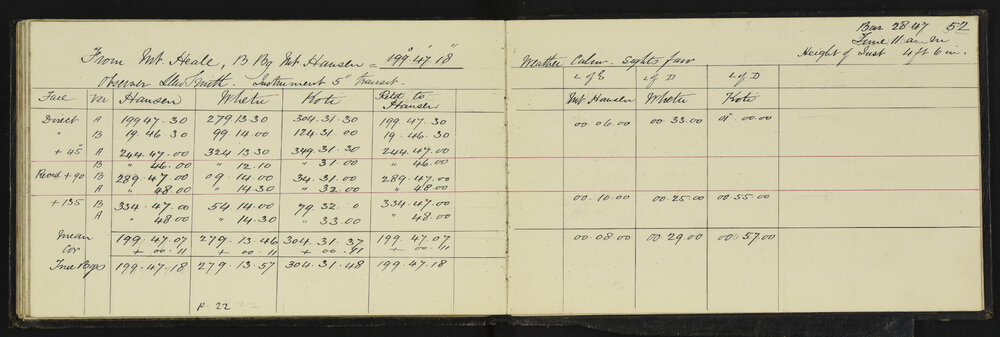 From Mt Heale, B Bg Mt Hansen = 199° 47' 18"
Observer Llew Smith. Instrument 5" transit.
Face Ver Hansen Whetu Koti Retd to Hansen
Direct A 199 47. 30 279 13 30 304. 31. 30 199 47. 30
" B 19. 46 30 99. 14. 00 124. 31 00 19. 46. 30
+ 45° A 244. 47. 00 324. 13. 30 349. 31. 30 244. 47. 00
B " 46. 00 " 12. 10 " 31. 00 " 46. 00
Revsd + 90 B 289. 47. 00 09. 14. 00 34. 31. 00 289. 47. 00
A " 48. 00 " 14. 30 " 32. 00 " 48. 00
+ 135 B 334. 47. 00 54. 14. 00 79 32. 0 334. 47. 00
A " 48. 00 " 14. 30 " 33. 00 " 48. 00
Mean 199. 47. 07 279. 13. 46 304. 31. 37 199. 47. 07
Cor + 00. 11 + 00. 11 + 00. 11 + 00. 11
True Bgs 199. 47. 18 279. 13. 57 304. 31. 48 199. 47. 18
p. 22
Bar 28 47 52
Time 11 a m
Height of Inst 4 ft 6 in.
Weather Calm. Sights fair
L of E L of D L of D
Mt Hansen Whetu Koti
00. 06. 00 00. 33. 00 01 00. 00
00. 10. 00 00. 25. 00 00 55. 00
00. 08. 00 00. 29. 00 00. 57. 00